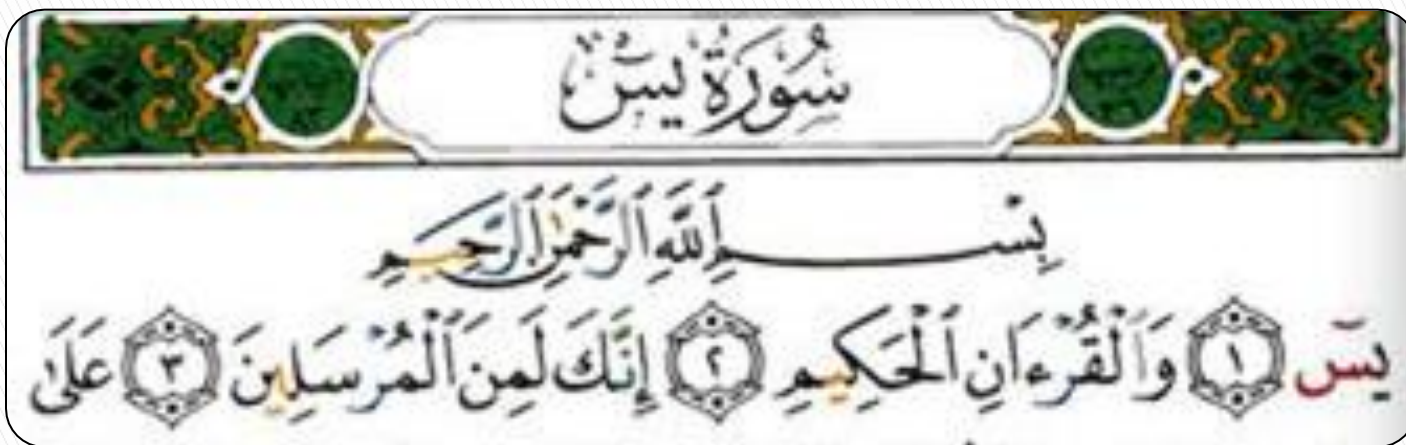 سُورَةُ يسٓ
بِسْمِ ٱللَّهِ ٱلرَّحْمَٰنِ ٱلرَّحِيمِ
يسٓ ١ وَٱلْقُرْءَانِ ٱلْحَكِيمِ ٢ إِنَّكَ لَمِنَ ٱلْمُرْسَلِينَ ٣ عَلَىٰ